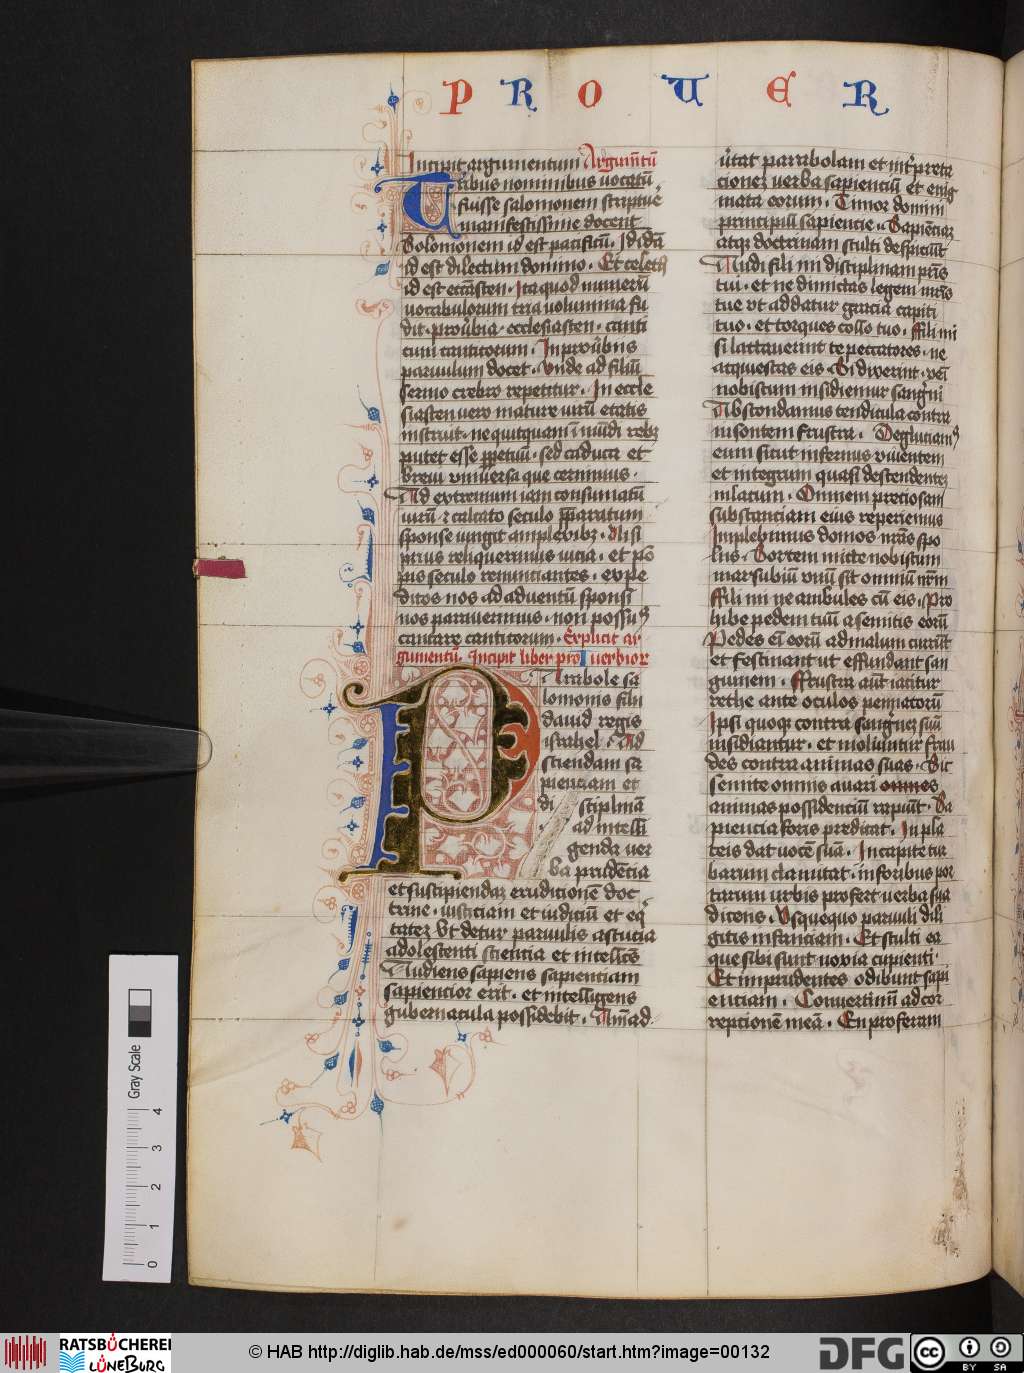 P R O U E R
Incipit argumentum Argum̄tū
Tribus nominibus uocatū
fuisse salomonem scripture
manifestissime docent
Solomonem id est pacificū . Ididā
id est dilectum domino . Et celeth
id est ecclāsten . Ita quod numerū
uocabulorum tria uolumina fu
dit . prouerbia . ecclesiasten . canti
cum canticorum . In prouerbiis
paruulum docet . Unde ad filiū
sermo crebro repetitur . In eccle
siasten uero mature uirū etatis
instruit . ne quitquam ī mūdi rebꝫ
putet esse ꝑpetuū . sed caduca et
breui uniuersa que cernimus .
Ad extremum iam consumatū
uirū ⁊ calcato seculo p̄paratum
sponse iungit amplexibꝫ . Nisi
prius reliquerimus uicia . et pō
pis seculo renunciantes . expe
ditos nos ad aduentū sponsi
nos parauerimus . non possuꝰ
cantare canticorum . Explicit ar
gumentū . Incipit liber prouerbior
Parabole sa
lomonis filii
dauid regis
israhel . Ad
sciendam sa
pienciam et
di sciplinā
ad intelli
genda uer
ba prudētia
et suscipiendaꝫ eruditionē doc
trine . iusticiam et iudiciū et eq
tateꝫ Ut detur paruulis astucia
adolescenti sciencia et intellcūs
Audiens sapiens sapientiam
sapiencior erit . et intelligens
gubernacula possidebit . Aīmad
u̓tat parabolam et int̓preta
cioneꝫ uerba sapienciū et enig
mata eorum . Timor domini
principiū sapiencie . Sapienciaꝫ
atqꝫ doctrinam stulti despiciūt
Audi fili mi disciplinam pr̄is
tui . et ne dimictas legem mr̄is
tue ut addatur gracia capiti
tuo . et torques collo tuo . Fili mi
si lactauerint te peccatores . ne
acquiescas eis . Si dixerint . ueī
nobiscum insidiemur sangni
Abscondamus tendicula contra
insontem frustra . Deglutiamꝰ
eum sicut infernus uiuentem
et integrum quasi descendenteꝫ
in lacum . Omnem preciosam
substanciam eius reperiemus
Implebimus domos nr̄as spo
liis . Sortem micte nobiscum
marsubiū unū sit omniū nr̄m
Fili mi ne ambules cū eis . Pro
hibe pedem tuū a semitis eorū
Pedes eī eorū ad malum currūt
et festinant ut effundant san
guinem . Frustra aūt iacitur
rethe ante oculos pennatorū
Ipsi quoqꝫ contra sanguineꝫ suū
insidiantur . et moliuntur frau
des contra animas suas . Sic
semite omnis auari omnes
animas possidenciū rapiūt . Sa
piencia foris predicat . In pla
teis dat uocē suā . In capite tur
barum clamitat . in foribus por
tarum urbis profert uerba sua
dicens . Usquequo paruuli dili
gitis infanciam . Et stulti ea
que sibi sunt noxia cupient
Et imprudentes odibunt sapi
enciam . Conuertimī ad cor
reptionē meā . En proferam
Gray Scale
0 1 2 3 4
RATSBÜCHEREI
LÜNEBURG
© HAB http://diglib.hab.de/mss/ed000060/start.htm?image=00132
DFG
cc BY SA